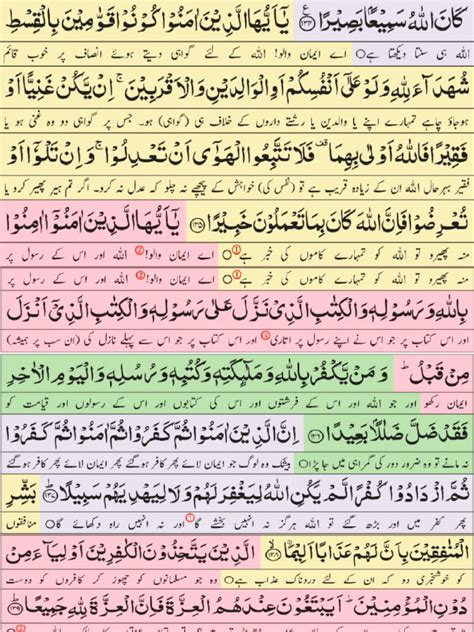 كَانَ اللّٰهُ سَمِيْعًۢا بَصِيْرًا ۝۱۳۴ يٰۤاَيُّهَا الَّذِيْنَ اٰمَنُوْا كُوْنُوْا قَوّٰمِيْنَ بِالْقِسْطِ
اللہ ہی سنتا دیکھتا ہے ○ اے ایمان والو! اللہ کے لئے گواہی دیتے ہوئے انصاف پر خوب قائم
شُهَدَآءَ لِلّٰهِ وَ لَوْ عَلٰۤى اَنْفُسِكُمْ اَوِ الْوَالِدَيْنِ وَ الْاَقْرَبِيْنَ ۚ اِنْ يَّكُنْ غَنِيًّا اَوْ
ہوجاؤ چاہے تمہارے اپنے یا والدین یا رشتے داروں کے خلاف ہی (گواہی) ہو۔ جس پر گواہی دو وہ غنی ہو یا
فَقِيْرًا فَاللّٰهُ اَوْلٰى بِهِمَا ۫ فَلَا تَتَّبِعُوا الْهَوٰۤى اَنْ تَعْدِلُوْا ۚ وَ اِنْ تَلْوٗۤا اَوْ
فقیر بہرحال اللہ ان کے زیادہ قریب ہے تو (نفس کی) خواہش کے پیچھے نہ چلو کہ عدل نہ کرو۔ اگر تم ہیر پھیر کرو یا
تُعْرِضُوْا فَاِنَّ اللّٰهَ كَانَ بِمَا تَعْمَلُوْنَ خَبِيْرًا ۝۱۳۵ يٰۤاَيُّهَا الَّذِيْنَ اٰمَنُوْۤا اٰمِنُوْا
منہ پھیرو تو اللہ کو تمہارے کاموں کی خبر ہے ○ اے ایمان والو! اللہ اور اس کے رسول پر
منہ پھیرو تو اللہ کو تمہارے کاموں کی خبر ہے ○ اے ایمان والو! اللہ اور اس کے رسول پر
بِاللّٰهِ وَ رَسُوْلِهٖ وَ الْكِتٰبِ الَّذِيْ نَزَّلَ عَلٰى رَسُوْلِهٖ وَ الْكِتٰبِ الَّذِيْۤ اَنْزَلَ
اور اس کتاب پر جو اس نے اپنے رسول پر اتاری اور اس کتاب پر جو اس سے پہلے نازل کی (ان سب پر ہمیشہ)
مِنْ قَبْلُ ؕ وَ مَنْ يَّكْفُرْ بِاللّٰهِ وَ مَلٰٓىِٕكَتِهٖ وَ كُتُبِهٖ وَ رُسُلِهٖ وَ الْيَوْمِ الْاٰخِرِ
ایمان رکھو اور جو اللہ اور اس کے فرشتوں اور اس کی کتابوں اور اس کے رسولوں اور قیامت کو
فَقَدْ ضَلَّ ضَلٰلًۢا بَعِيْدًا ۝۱۳۶ اِنَّ الَّذِيْنَ اٰمَنُوْا ثُمَّ كَفَرُوْا ثُمَّ اٰمَنُوْا ثُمَّ كَفَرُوْا
نہ مانے تو وہ ضرور دور کی گمراہی میں جا پڑا ○ بیشک وہ لوگ جو ایمان لائے پھر کافر ہوگئے پھر ایمان لائے پھر کافر ہوگئے
ثُمَّ ازْدَادُوْا كُفْرًا لَّمْ يَكُنِ اللّٰهُ لِيَغْفِرَ لَهُمْ وَ لَا لِيَهْدِيَهُمْ سَبِيْلًا ۝۱۳۷ بَشِّرِ
پھر کفر میں اور بڑھ گئے تو اللہ ہرگز نہ انہیں بخشے گا اور نہ انہیں راہ دکھائے گا ○ منافقوں
الْمُنٰفِقِيْنَ بِاَنَّ لَهُمْ عَذَابًا اَلِيْمًا ۝۱۳۸ الَّذِيْنَ يَتَّخِذُوْنَ الْكٰفِرِيْنَ اَوْلِيَآءَ مِنْ
کو خوشخبری دو کہ ان کے لئے دردناک عذاب ہے ○ وہ جو مسلمانوں کو چھوڑ کر کافروں کو دوست
دُوْنِ الْمُؤْمِنِيْنَ ؕ اَيَبْتَغُوْنَ عِنْدَهُمُ الْعِزَّةَ فَاِنَّ الْعِزَّةَ لِلّٰهِ جَمِيْعًا ۝۱۳۹